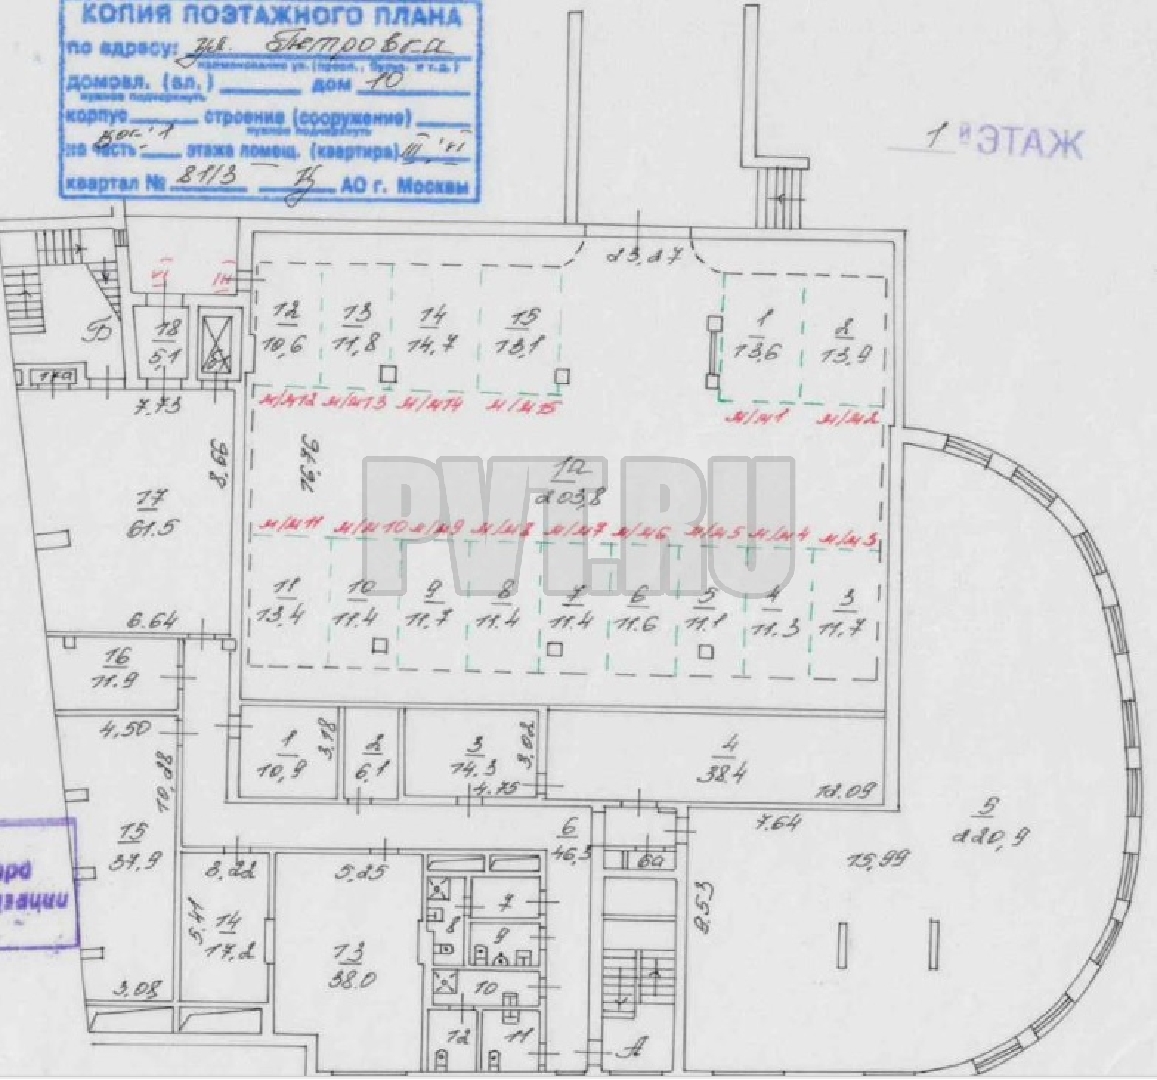 КОПИЯ ПОЭТАЖНОГО ПЛАНА
по адресу: ул. Петровка
наименование ул. (просп., бульв. и т.д.)
домовл. (вл.) дом 10
нужное подчеркнуть
корпус строение (сооружение)
нужное подчеркнуть
на часть этажа помещ. (квартира) III, VI
квартал № 81/3 Ц АО г. Москвы
1й ЭТАЖ
23,27
VI III
12 10,6
13 11,8
14 14,7
15 13,1
1 13,6
2 13,9
Б
18 5,1
17а
7,73
м/м12 м/м13 м/м14 м/м15 м/м1 м/м2
8,66
16,76
1а 203,8
PVT.RU
17 61.5
м/м11 м/м10 м/м9 м/м8 м/м7 м/м6 м/м5 м/м4 м/м3
11 13,4
10 11.4
9 11,7
8 11.4
7 11.4
6 11.6
5 11.1
4 11,3
3 11,7
6.64
16 11.9
4,50
10,28
1 10,9
3,18
2 6,1
3 14.3
3,02
4.75
4 38.4
12.09
5 220,9
7.64
15,99
15 37,9
6 46,3
6а
3,22
5,25
8.53
5,41
14 17,2
13 38.0
7
8
9
10
11
12
3,08
А